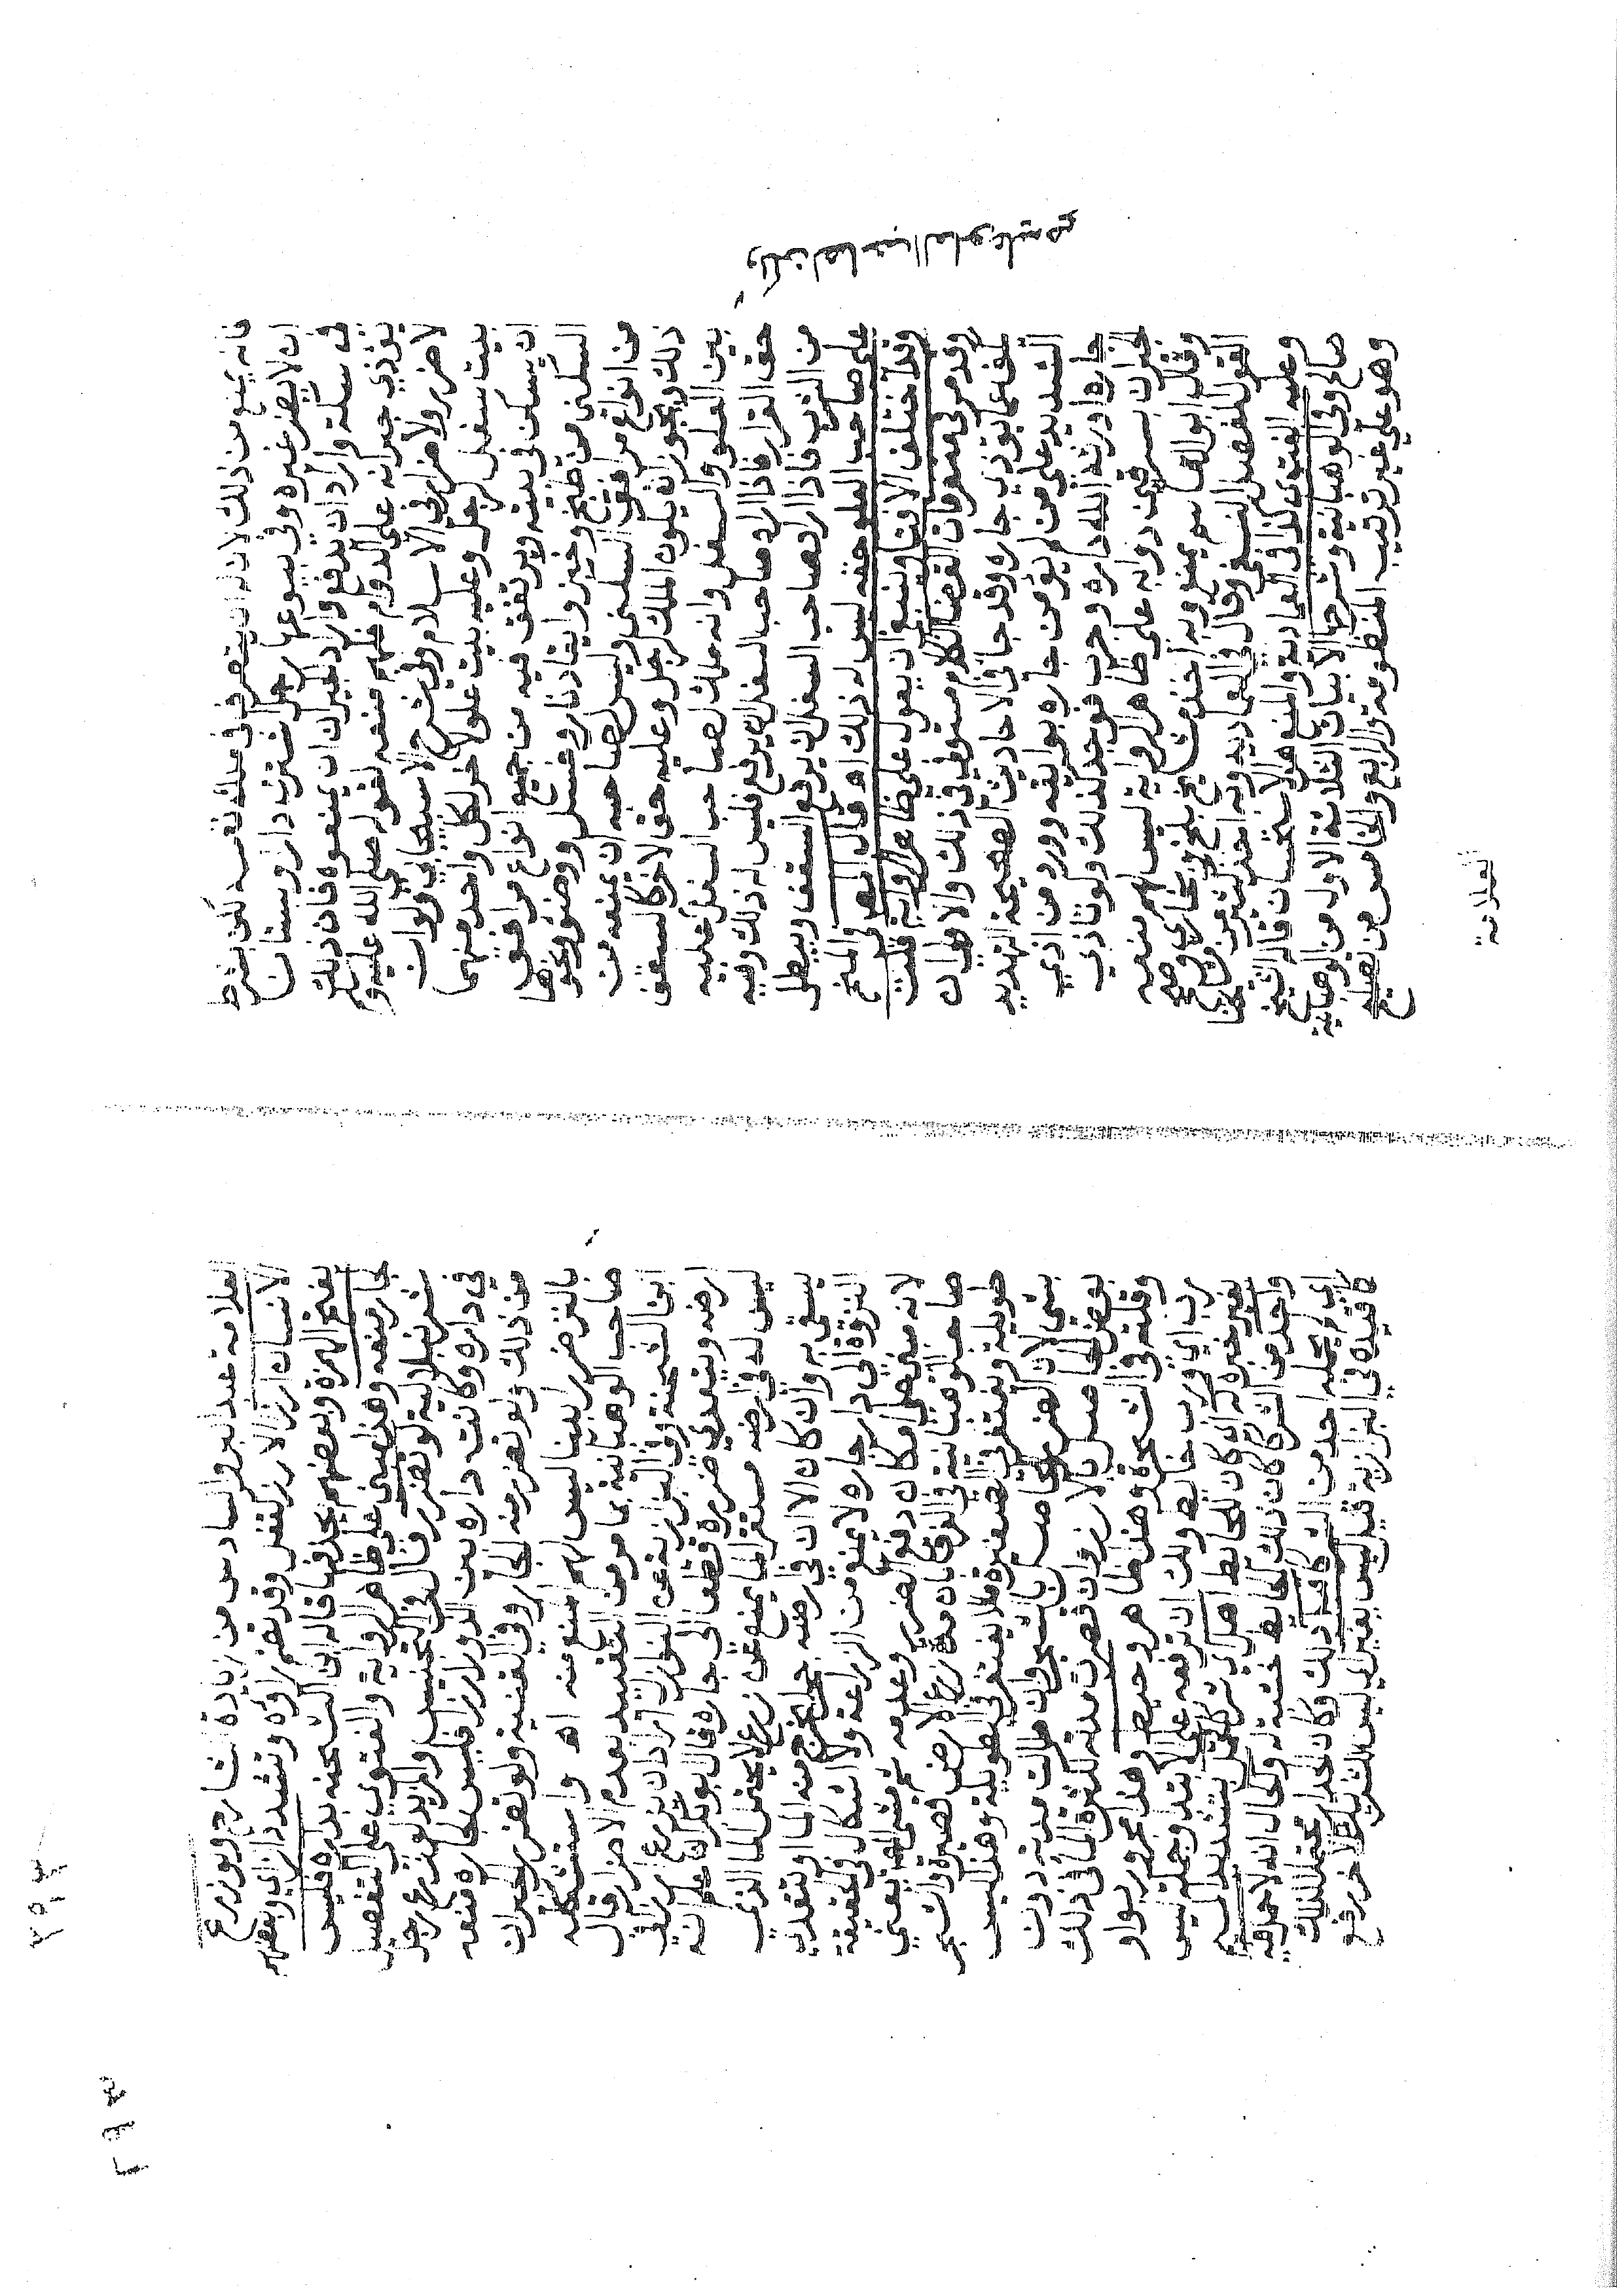 ولكن لصاحب العلو عليه
فانه يمنع من ذلك لان له ان يتصرف في ملك نفسه لكن بشرط
ان لا يضر غيره وفي بيوعها رجل اشترى دارا وبستان
في سكة واراد ان يدفع واراد الجيران ان يمنعوه فان ذلك
يؤذي جيرانه على الدوام فلهم منعه لقوله صلى الله عليه وسلم
لا ضرر ولا ضرار في الاسلام وفي شرح الاسبيجابي ولو ان
بيت سفل لرجل وعليه بيت علو لاخر لكل واحد منهما
ان يسكن في بيته ويرتفق فيه من جميع انواع مرافق
السكنى من طبخ وخبز وايقاد نار وغسل ووضوء ونحوها
من انواع مرافق السكنى وليس لصاحبه ان يمنعه من
ذلك ويجوز ان يكون الملك لرجل وعليه حق لاخر كالسقف
بين العلو والسفل وانه ملك لصاحب السفل عليه
حق القرار فاذا اراد صاحب السفل ان يرفع فليس له ذلك وفيه
من الشرب فاذا اراد صاحب السفل ان يرفع السقف ويبطل
على صاحب العلو حقه ليس له ذلك اه وقال المص في المنح
وقد اختلف الافتا وينبغي ان يعول على ظاهر الرواية قلت
وقد مر في متفرقات القضا الكلام مستوفي في ذلك والاولى ان
يكف عما يؤذي جاره وقد جا في الاحاديث الصحيحة التهديد
الشديد على من لم يؤمن جاره بوائقه وورد من اذى
جاره اورثه الله داره وجرب فوجد كذلك ولو تاذي
الجيران بسرقين دوابه على ظاهر الرواية ليس لهم منعه
وقال ابو القاسم يمنع وبه اخذ مشايخ بلخ وبخارى وصح
القول المفصل النسفي وقال في العماديه وبه اخذ كثير من مشايخنا
وعليه الفتوى كذا في العمادية والمنع هو الاستحسان قاله الشيخ
صالح وفي الوهبانية وشرحها الابيات الثلاثة الاول من الوهبانية
وهو على غير ترتيب المنظومة والرابع والخامس من
العلامة
العلامة عبد البر والسادس من زيادة الشارح ولو زرع
الانسان ارزا الارز كقفل وقد تضم راؤه وتشدد الزاي وبعضهم
يفتح الهمزة وبعضهم يحذفها قاله ابن الشحنه بداره فليس
لجار منعه وهذا مبني على ظاهر الرواية والفتوى على التفصيل
شرنبلالية لو تضرر قال في التجنيس والمزيد لو زرع رجل
في داره وكانت داره بين الدور ارزا فليس لجاره منعه
من ذلك ولو تضرر منه الجار وفي القنية ولو تضرر الجيران
بالنز ضررا بينا ليس لهم المنع منه اه واستشكله
صاحب الوهبانية بما مر من التقييد بعدم الاضرار قال
ابن الشحنة وفي البزازية عن النوازل اراد ان يزرع ارزا في
ارضه ويتعدي ضرره قطعا الى جاره قال ابو بكر ان علم انه
ليس له في ارضه مستقر الما يمنع عن زرع لا يحتمل الما الذي
يسقى به وان كان الا ان في ارضه جحرا يخرج منه الما ويتعدي
النزوة الى دار جاره لا يمنع من الزراعة ولا اشكال في الحقيقة
لانه مبني على امكان دفع الضرر وعدمه ثم مشى يعني
صاحب الوهبانية في الفرق بان مدة زرع الارض قصيرة والشجر
طويلة ويغتفر في القصيرة ما لا يغتفر في الطويلة وهذا ليس
بشي لان الضرر الحاصل بالشجر وان طالت مدته دون
بعض الحاصل بالارز وان قصرت مدته لكثرة الما في ذلك
وقلته في الشجرة وهذا ظاهر وحيط وهذا مجرور بواو
رب اي ورب حايط وله ان ترفعه على ابتدا وجملة ليس
بغير خبره له لو كان لحايط اهل اي تحمل بتشديد الميم
واحد من الشركا كان ذلك الحايط خشبه له والحال انه لا حمل فيه
اي لم يحمله احد من الشركا فيه وكان الجدار محتملا لذلك
كما قيده في البزازية قيد ليس بغير اي ليس للشريك الاخر رفع